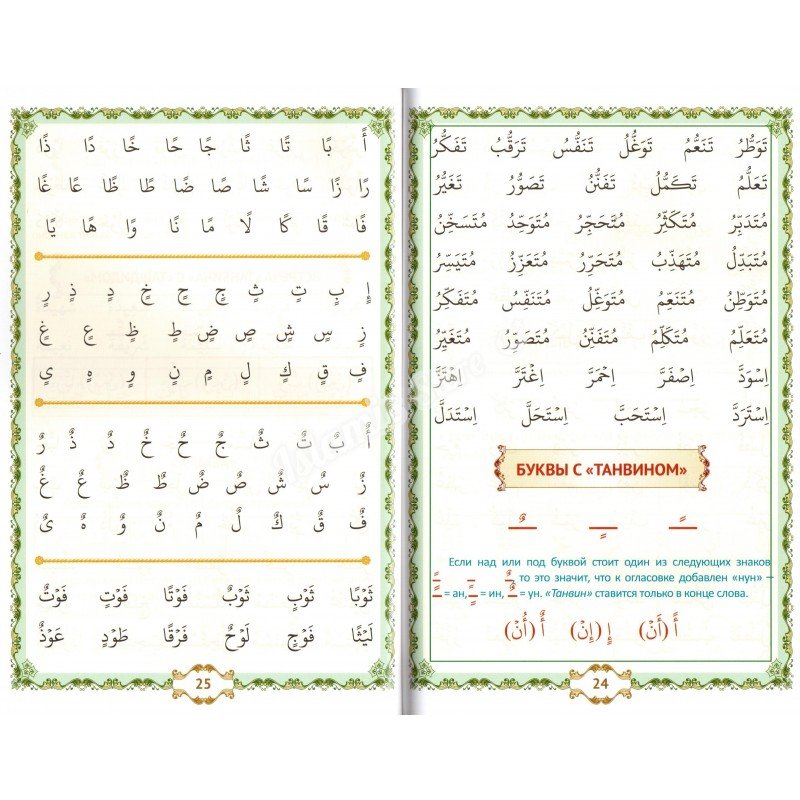 تَوَطُّرُ تَنَعُّمُ تَوَغُّلُ تَنَفُّسُ تَرَقُّبُ تَفَكُّرُ
تَعَلُّمُ تَكَمُّلُ تَفَنُّنُ تَصَوُّرُ تَغَيُّرُ
مُتَدَبِّرُ مُتَكَثِّرُ مُتَحَجِّرُ مُتَوَحِّدُ مُتَسَخِّنُ
مُتَبَدِّلُ مُتَهَذِّبُ مُتَحَرِّرُ مُتَعَزِّزُ مُتَيَسِّرُ
مُتَوَطِّنُ مُتَنَعِّمُ مُتَوَغِّلُ مُتَنَفِّسُ مُتَفَكِّرُ
مُتَعَلِّمُ مُتَكَلِّمُ مُتَفَنِّنُ مُتَصَوِّرُ مُتَغَيِّرُ
اِسْوَدَّ اِصْفَرَّ اِحْمَرَّ اِغْتَرَّ اِهْتَزَّ
اِسْتَرَدَّ اِسْتَحَبَّ اِسْتَحَلَّ اِسْتَدَلَّ
БУКВЫ С «ТАНВИНОМ»
ـًـ ـٍـ ـٌـ
Если над или под буквой стоит один из следующих знаков
ـٌـ, то это значит, что к огласовке добавлен «нун» –
ـًـ = ан, ـٍـ = ин, ـٌـ = ун. «Танвин» ставится только в конце слова.
أً (أَنْ) إٍ (إِنْ) أٌ (أُنْ)
24
أً بًا تًا ثًا جًا حًا خًا دًا ذًا
رًا زًا سًا شًا صًا ضًا طًا ظًا عًا غًا
فًا قًا كًا لًا مًا نًا وًا هًا يًا
إٍ بٍ تٍ ثٍ جٍ حٍ خٍ دٍ ذٍ رٍ
زٍ سٍ شٍ صٍ ضٍ طٍ ظٍ عٍ غٍ
فٍ قٍ كٍ لٍ مٍ نٍ وٍ هٍ يٍ
أٌ بٌ تٌ ثٌ جٌ حٌ خٌ دٌ ذٌ رٌ
زٌ سٌ شٌ صٌ ضٌ طٌ ظٌ عٌ غٌ
فٌ قٌ كٌ لٌ مٌ نٌ وٌ هٌ ىٌ
ثَوْبًا ثَوْبٍ ثَوْبٌ فَوْتًا فَوْتٍ فَوْتٌ
لَيْثًا فَوْجٍ لَوْحٌ فَرْقًا طَوْدٍ عَوْذٌ
25